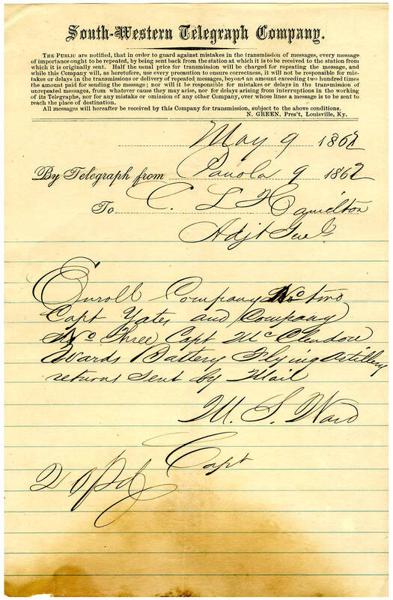 South-Western Telegraph Company.
The Public are notified, that in order to guard against mistakes in the transmission of messages, every message
of importance ought to be repeated, by being sent back from the station at which it is to be received to the station from
which it is originally sent. Half the usual price for transmission will be charged for repeating the message, and
while this Company will, as heretofore, use every precaution to ensure correctness, it will not be responsible for mis-
takes or delays in the transmissions or delivery of repeated messages, beyond an amount exceeding two hundred times
the amount paid for sending the message; nor will it be responsible for mistakes or delays in the transmission of
unrepeated messages, from whatever cause they may arise, nor for delays arising from interruptions in the working
of its Telegraphs, nor for any mistake or omission of any other Company, over whose lines a message is to be sent to
reach the place of destination.
All messages will hereafter be received by this Company for transmission, subject to the above conditions.
N. GREEN, Pres't, Louisville, Ky.
May 9 1862
By Telegraph from Panola 9 1862
To C. L. Hamilton
Adjt Genl
Enroll Company No two
Capt Yates and Company
No three Capt McClendon
Wards Battery Flying Artillery
returns sent by Mail
M. S. Ward
Capt
20 pd